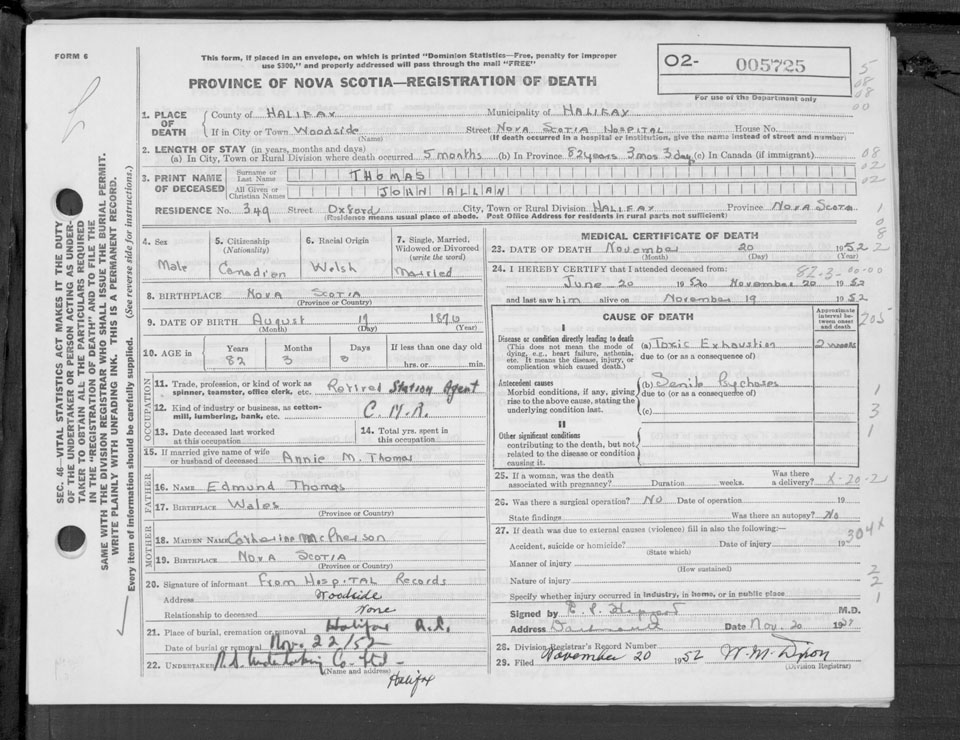 FORM 6
This form, if placed in an envelope, on which is printed "Dominion Statistics—Free, penalty for improper
use $300," and properly addressed will pass through the mail "FREE"
PROVINCE OF NOVA SCOTIA—REGISTRATION OF DEATH
02- 005725
For use of the Department only
SEC. 46—VITAL STATISTICS ACT MAKES IT THE DUTY
OF THE UNDERTAKER OR PERSON ACTING AS UNDER-
TAKER TO OBTAIN ALL THE PARTICULARS REQUIRED
IN THE "REGISTRATION OF DEATH" AND TO FILE THE
SAME WITH THE DIVISION REGISTRAR WHO SHALL ISSUE THE BURIAL PERMIT.
WRITE PLAINLY WITH UNFADING INK. THIS IS A PERMANENT RECORD.
Every item of information should be carefully supplied. (See reverse side for instructions.)
1. PLACE OF DEATH
County of HALIFAX Municipality of HALIFAX
If in City or Town Woodside Street NOVA SCOTIA HOSPITAL House No.
(Name) (If death occurred in a hospital or institution, give the name instead of street and number)
2. LENGTH OF STAY (in years, months and days)
(a) In City, Town or Rural Division where death occurred 5 months (b) In Province 82 years 3 mos 3 days (c) In Canada (if immigrant)
3. PRINT NAME OF DECEASED
Surname or Last Name THOMAS
All Given or Christian Names JOHN ALLAN
RESIDENCE No. 349 Street Oxford City, Town or Rural Division HALIFAX Province NOVA SCOTIA
(Residence means usual place of abode. Post Office Address for residents in rural parts not sufficient)
4. Sex
Male
5. Citizenship
(Nationality)
Canadian
6. Racial Origin
Welsh
7. Single, Married,
Widowed or Divorced
(write the word)
Married
8. BIRTHPLACE NOVA SCOTIA
(Province or Country)
9. DATE OF BIRTH August 17 1870
(Month) (Day) (Year)
10. AGE in
Years Months Days If less than one day old
82 3 hrs. or min.
OCCUPATION
11. Trade, profession, or kind of work as
spinner, teamster, office clerk, etc. Retired Station Agent
12. Kind of industry or business, as cotton-
mill, lumbering, bank, etc. C.N.R.
13. Date deceased last worked
at this occupation
14. Total yrs. spent in
this occupation
15. If married give name of wife
or husband of deceased Annie M. Thomas
FATHER
16. NAME Edmund Thomas
17. BIRTHPLACE Wales
(Province or Country)
MOTHER
18. MAIDEN NAME Catherine McPherson
19. BIRTHPLACE NOVA SCOTIA
(Province or Country)
20. Signature of informant From HOSPITAL Records
Address Woodside
Relationship to deceased None
21. Place of burial, cremation or removal Halifax
Date of burial or removal Nov. 22/52
22. UNDERTAKER N.S. Undertaking Co. Ltd -
(Name and address)
Halifax
MEDICAL CERTIFICATE OF DEATH
23. DATE OF DEATH November 20 1952
(Month) (Day) (Year)
24. I HEREBY CERTIFY that I attended deceased from:
June 20 1952 to November 20 1952
and last saw him alive on November 19 1952
CAUSE OF DEATH
Approximate
interval be-
tween onset
and death
I
Disease or condition directly leading to death
(This does not mean the mode of
dying, e.g., heart failure, asthenia,
etc. It means the disease, injury, or
complication which caused death.)
(a) Toxic Exhaustion 2 weeks
due to (or as a consequence of)
Antecedent causes
Morbid conditions, if any, giving
rise to the above cause, stating the
underlying condition last.
(b) Senile Psychoses
due to (or as a consequence of)
(c)
II
Other significant conditions
contributing to the death, but not
related to the disease or condition
causing it.
25. If a woman, was the death
associated with pregnancy? Duration weeks. Was there
a delivery? X-20-2
26. Was there a surgical operation? NO Date of operation 19
State findings Was there an autopsy? No
27. If death was due to external causes (violence) fill in also the following:—
Accident, suicide or homicide? Date of injury 19
(State which)
Manner of injury
(How sustained)
Nature of injury
Specify whether injury occurred in industry, in home, or in public place
Signed by M.D.
Address Dartmouth Date Nov. 20
28. Division Registrar's Record Number
29. Filed November 20 1952 W. M. Dixon
(Division Registrar)